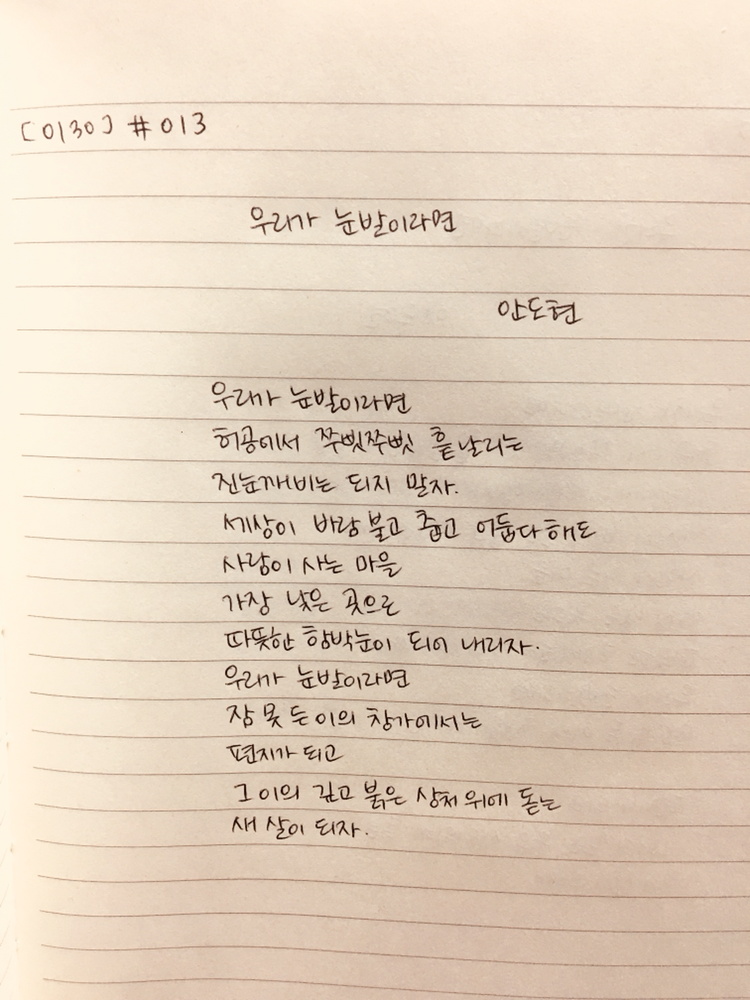 [0130] #013
우리가 눈발이라면
안도현
우리가 눈발이라면
허공에서 쭈삣쭈삣 흩날리는
진눈깨비는 되지 말자.
세상이 바람 불고 춥고 어둡다 해도
사람이 사는 마을
가장 낮은 곳으로
따뜻한 함박눈이 되어 내리자.
우리가 눈발이라면
잠 못 든 이의 창가에서는
편지가 되고
그 이의 깊고 붉은 상처 위에 돋는
새 살이 되자.